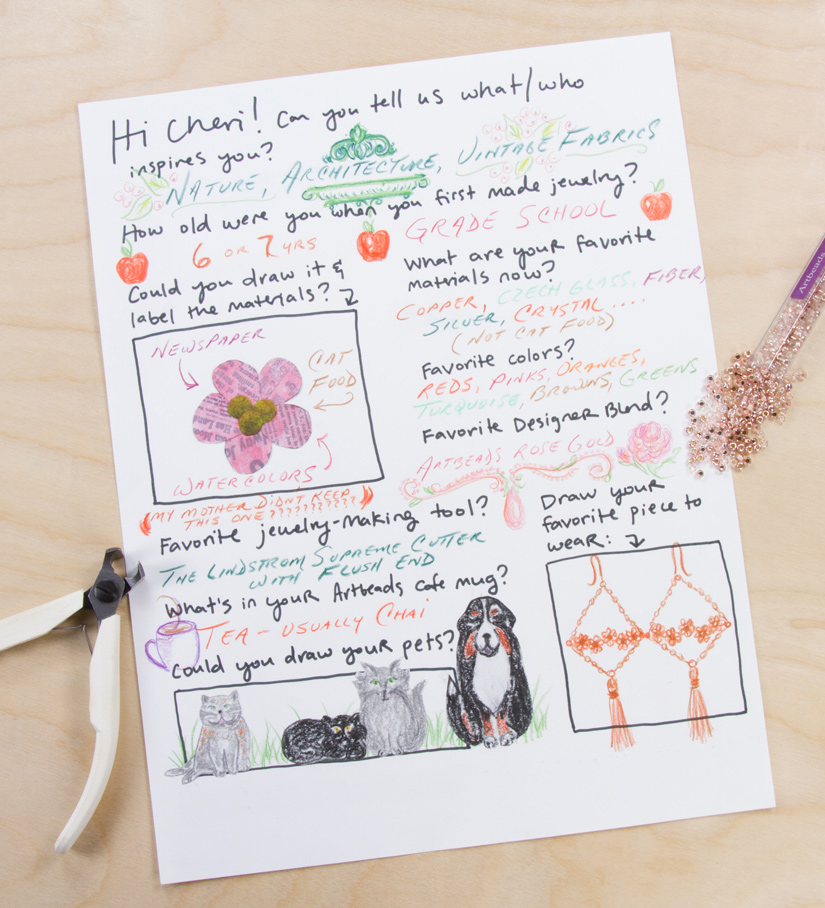 Hi Cheri! Can you tell us what/who
inspires you?
NATURE, ARCHITECTURE, VINTAGE FABRICS
How old were you when you first made jewelry?
6 OR 7 YRS
GRADE SCHOOL
Could you draw it &
label the materials?
NEWSPAPER
CAT
FOOD
WATERCOLORS
(MY MOTHER DIDN'T KEEP
THIS ONE???????????)
What are your favorite
matrials now?
COPPER, CZECH GLASS, FIBER,
SILVER, CRYSTAL ....
(NOT CAT FOOD)
Favorite colors?
REDS, PINKS, ORANGES,
TURQUOISE, BROWNS, GREENS
Favorite Designer Blend?
ARTBEADS ROSE GOLD
Favorite jewelry-making tool?
THE LINDSTROM SUPREME CUTTER
WITH FLUSH END
What's in your Artbeads Cafe mug?
TEA - USUALLY CHAI
Could you draw your pets?
Draw your
favorite piece to
wear:
Artbeads